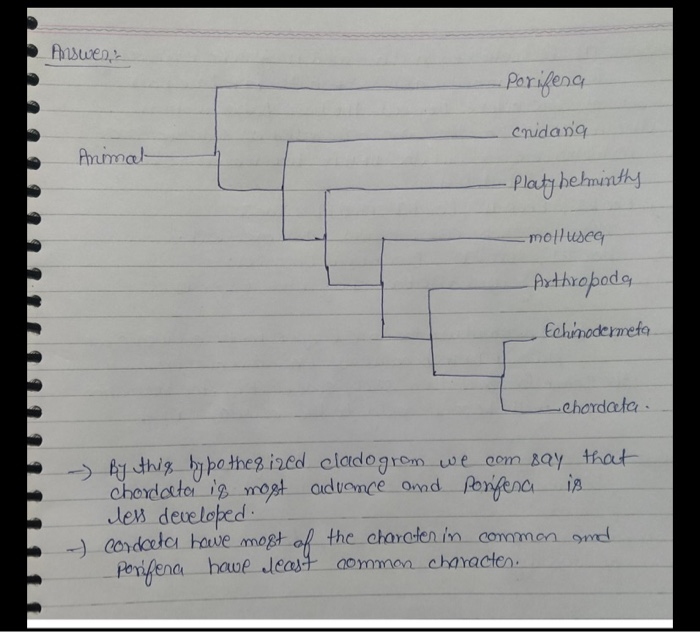 Answer:-
Porifera
cnidaria
Animal
Platyhelminths
mollusca
Arthropoda
Echinodermeta
chordata.
→ By this hypothesized cladogram we can say that
chordata is most advance and Porifera is
less developed.
→ cordata have most of the character in common and
Porifera have least common character.